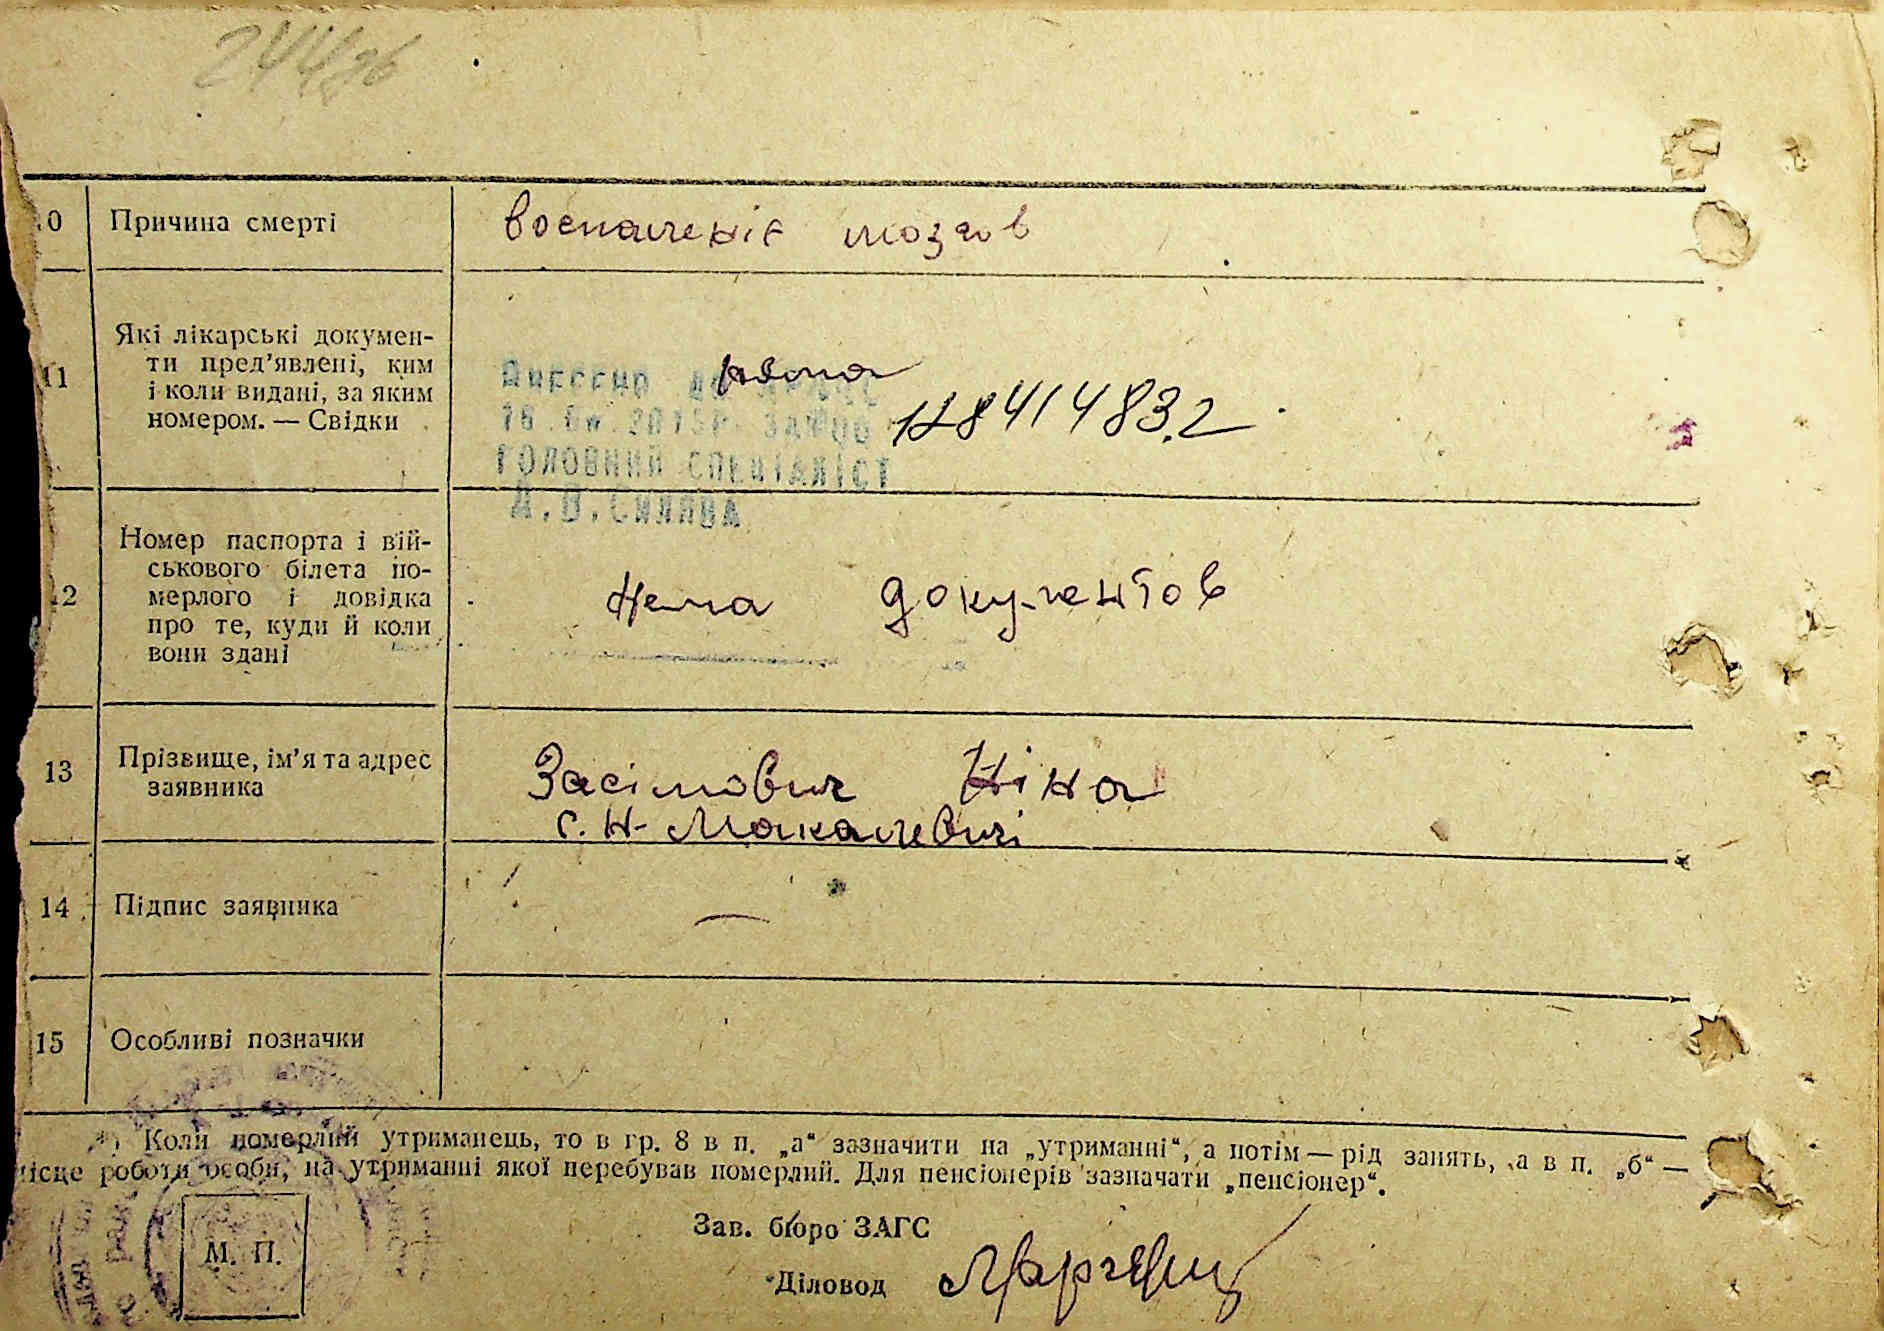 244зв
10 Причина смерті воспаленіє мозгов
11 Які лікарські докумен-
ти пред'явлені, ким
і коли видані, за яким
номером. — Свідки
нема
128414832
Внесено до
ГОЛОВНИЙ СПЕЦІАЛІСТ
12 Номер паспорта і вій-
ськового білета по-
мерлого і довідка
про те, куди й коли
вони здані
Нема документов
13 Прізвище, ім'я та адрес
заявника
Засімович Ніна
с. Н-Макалевичі
14 Підпис заявника —
15 Особливі позначки
*) Коли померлий утриманець, то в гр. 8 в п. „а“ зазначити на „утриманні“, а потім — рід занять, а в п. „б“ —
місце роботи особи, на утриманні якої перебував померлий. Для пенсіонерів зазначати „пенсіонер“.
М. П.
Зав. бюро ЗАГС
Діловод